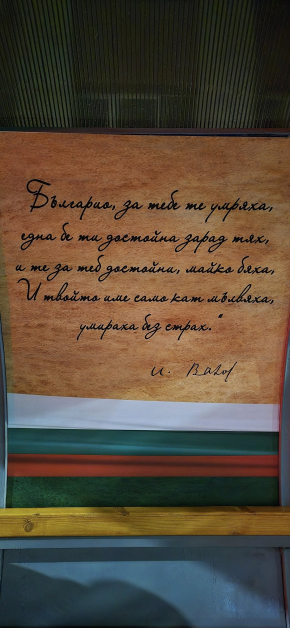 Българио, за тебе те умряха,
една бе ти достойна зарад тях,
и те за теб достойни, майко бяха,
И твойто име само кат мълвяха,
умираха без страх."
И. Вазов